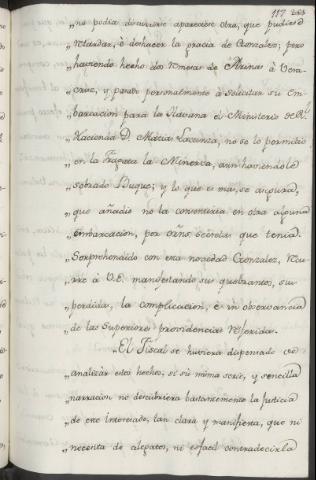 117 253
„no podia discurrirse apareciese otra, que pudiese
„retardar, ó deshacer la gracia de Gonzalez; pero
„haviendo hecho dos remesas de Arinas à Vera-
„cruz, y pasar personalmente à solicitar su Em-
„barcacion para la Havana el Ministerio de Rl.
„Hacienda D. Matias Lacunza, no se lo permitió
„en la Fragata la Minerva, aun haviendole
„sobrado Buque; y lo que es mas, se asegura,
„que añadió no la consentiria en otra alguna
„embarcacion, por orns. secretas que tenia.
„Sorprehendido con esta novedad Gonzalez, recu-
„rre à V.E. manifestando sus quebrantos, su
„perdida, la complicacion, è in observancia
„de las Superiores providencias referidas.
„El Fiscal se huviera dispensado de
„analizar estos hechos, si su misma serie, y sencilla
„narracion no descubriera bastantemente la justicia
„de este Interesado, tan clara y manifiesta, que ni
„necesita de alegatos, ni es facil contradecirla